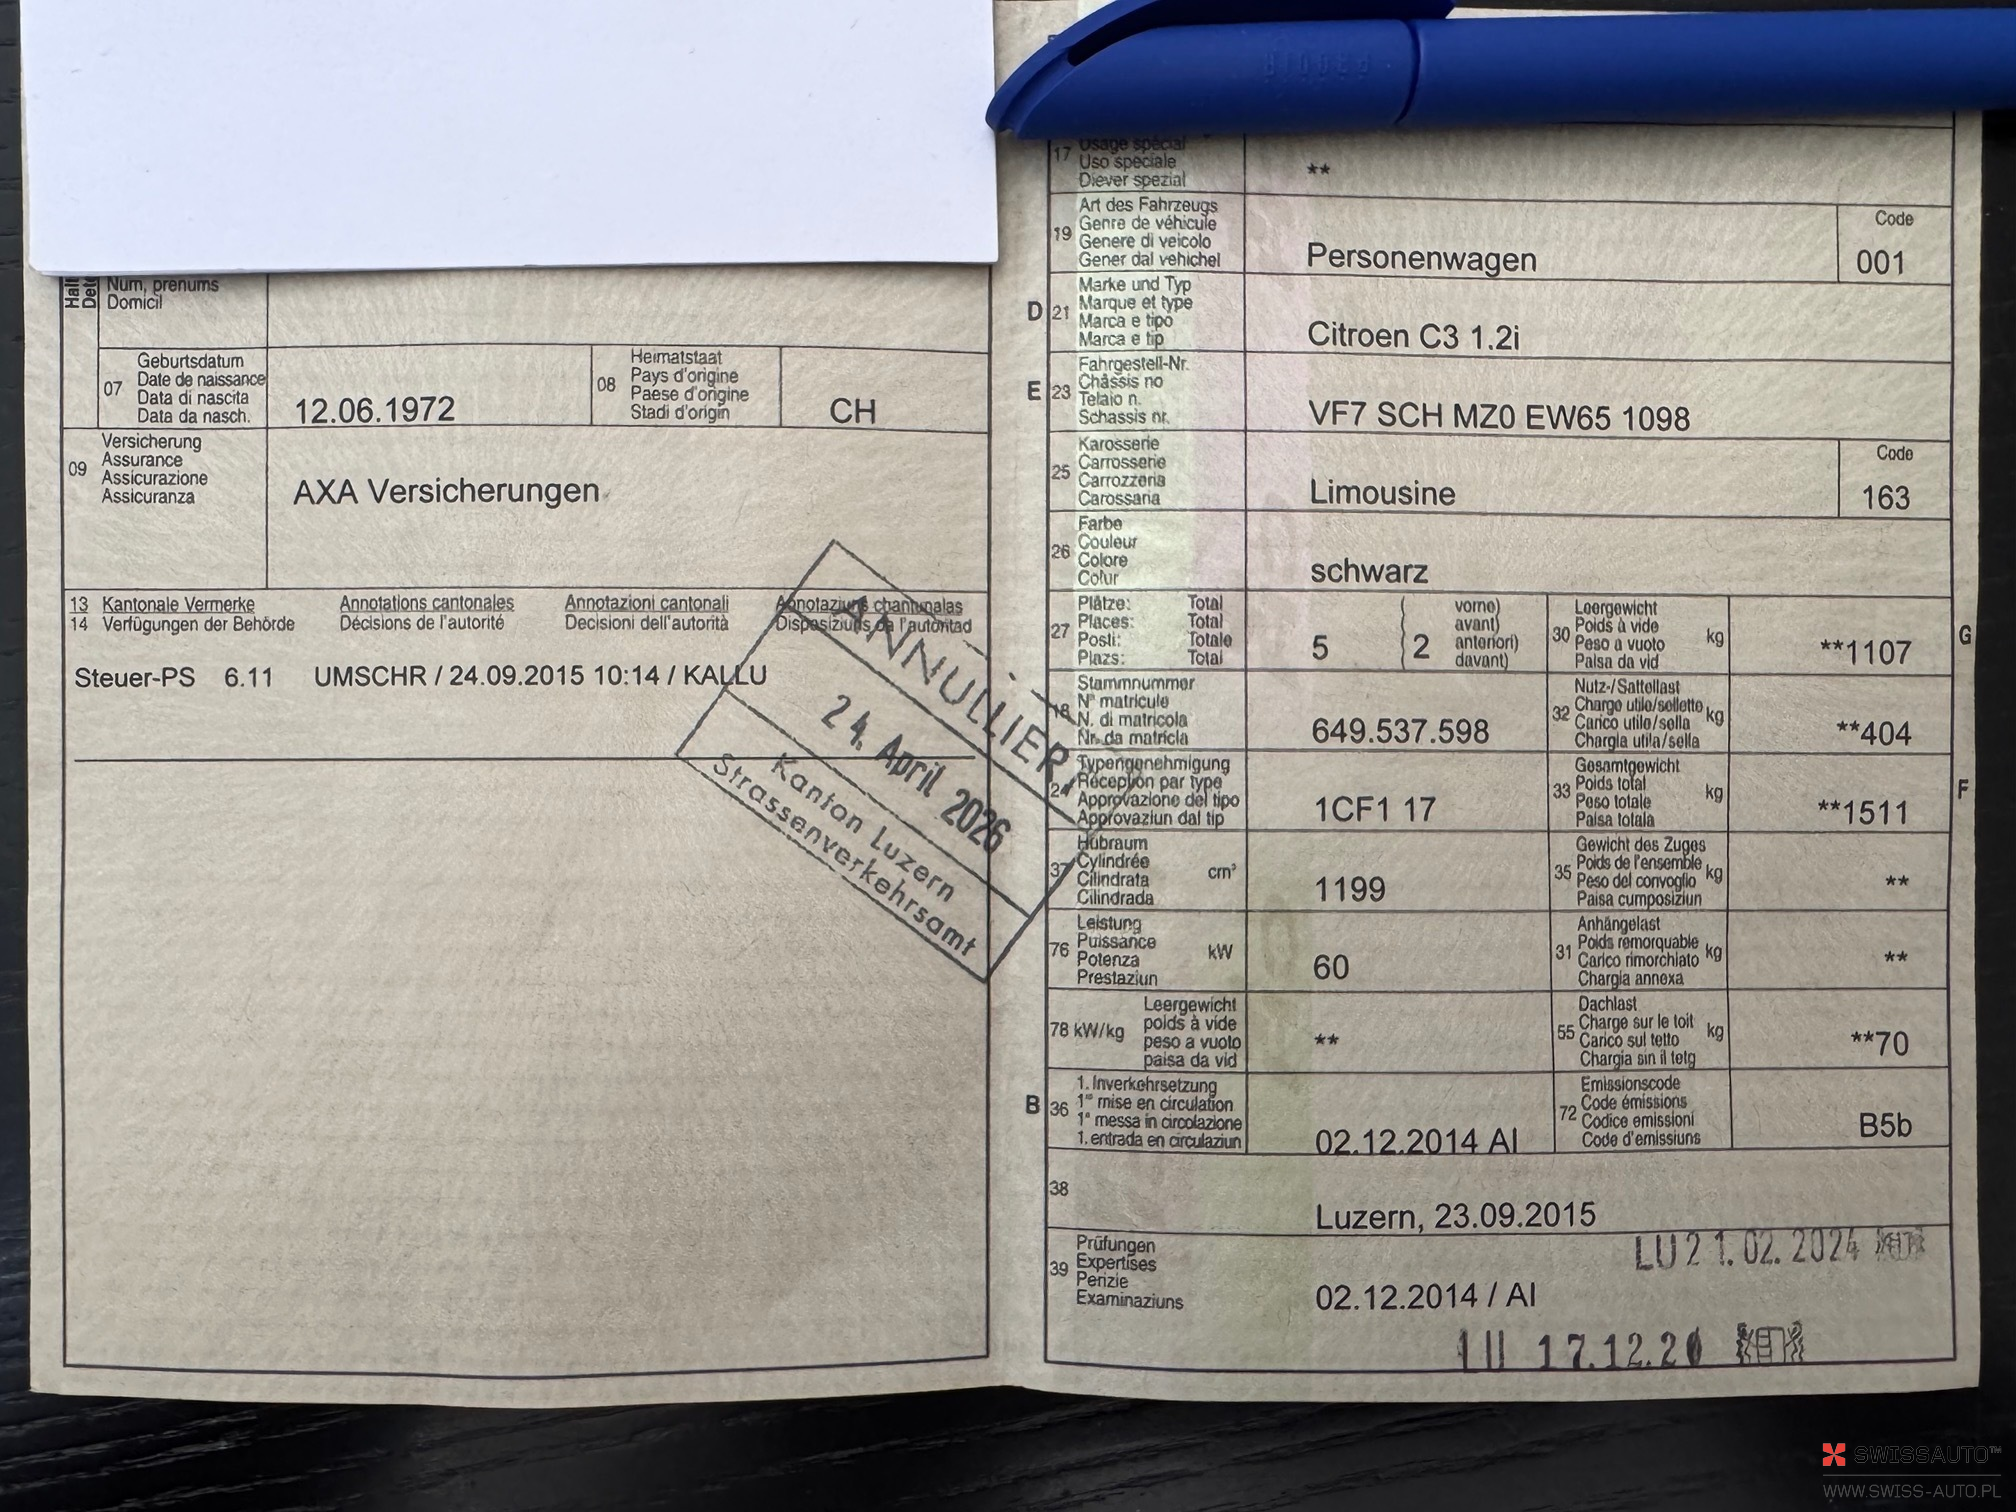 Num, prenums
Domicil
07
Geburtsdatum
Date de naissance
Data di nascita
Data da nasch.
12.06.1972
08
Heimatstaat
Pays d'origine
Paese d'origine
Stadi d'origin
CH
09
Versicherung
Assurance
Assicurazione
Assicuranza
AXA Versicherungen
13 Kantonale Vermerke Annotations cantonales Annotazioni cantonali Annotaziuns chantunalas
14 Verfügungen der Behörde Décisions de l'autorité Decisioni dell'autorità Disposiziuns da l'autoritad
Steuer-PS 6.11 UMSCHR / 24.09.2015 10:14 / KALLU
ANNULLIERT
24. April 2026
Kanton Luzern
Strassenverkehrsamt
17
Usage spécial
Uso speciale
Diever spezial
**
19
Art des Fahrzeugs
Genre de véhicule
Genere di veicolo
Gener dal vehichel
Personenwagen
Code
001
D 21
Marke und Typ
Marque et type
Marca e tipo
Marca e tip
Citroen C3 1.2i
E 23
Fahrgestell-Nr.
Châssis no
Telaio n.
Schassis nr.
VF7 SCH MZ0 EW65 1098
25
Karosserie
Carrosserie
Carrozzeria
Carossaria
Limousine
Code
163
26
Farbe
Couleur
Colore
Colur
schwarz
27
Plätze: Total
Places: Total
Posti: Totale
Plazs: Total
5
2
vorne)
avant)
anteriori)
davant)
30
Leergewicht
Poids à vide
Peso a vuoto
Paisa da vid
kg
**1107
G
18
Stammnummer
N° matricule
N. di matricola
Nr. da matricla
649.537.598
32
Nutz-/Sattellast
Charge utile/sellette
Carico utile/sella
Chargia utila/sella
kg
**404
24
Typengenehmigung
Réception par type
Approvazione del tipo
Approvaziun dal tip
1CF1 17
33
Gesamtgewicht
Poids total
Peso totale
Paisa totala
kg
**1511
F
37
Hubraum
Cylindrée
Cilindrata
Cilindrada
cm³
1199
35
Gewicht des Zuges
Poids de l'ensemble
Peso del convoglio
Paisa cumposiziun
kg
**
76
Leistung
Puissance
Potenza
Prestaziun
kW
60
31
Anhängelast
Poids remorquable
Carico rimorchiato
Chargia annexa
kg
**
78 kW/kg
Leergewicht
poids à vide
peso a vuoto
paisa da vid
**
55
Dachlast
Charge sur le toit
Carico sul tetto
Chargia sin il tetg
kg
**70
B 36
1. Inverkehrsetzung
1re mise en circulation
1a messa in circolazione
1. entrada en circulaziun
02.12.2014 AI
72
Emissionscode
Code émissions
Codice emissioni
Code d'emissiuns
B5b
38
Luzern, 23.09.2015
39
Prüfungen
Expertises
Perizie
Examinaziuns
LU 21.02.2024
02.12.2014 / AI
LU 17.12.20
SWISSAUTO™
WWW.SWISS-AUTO.PL